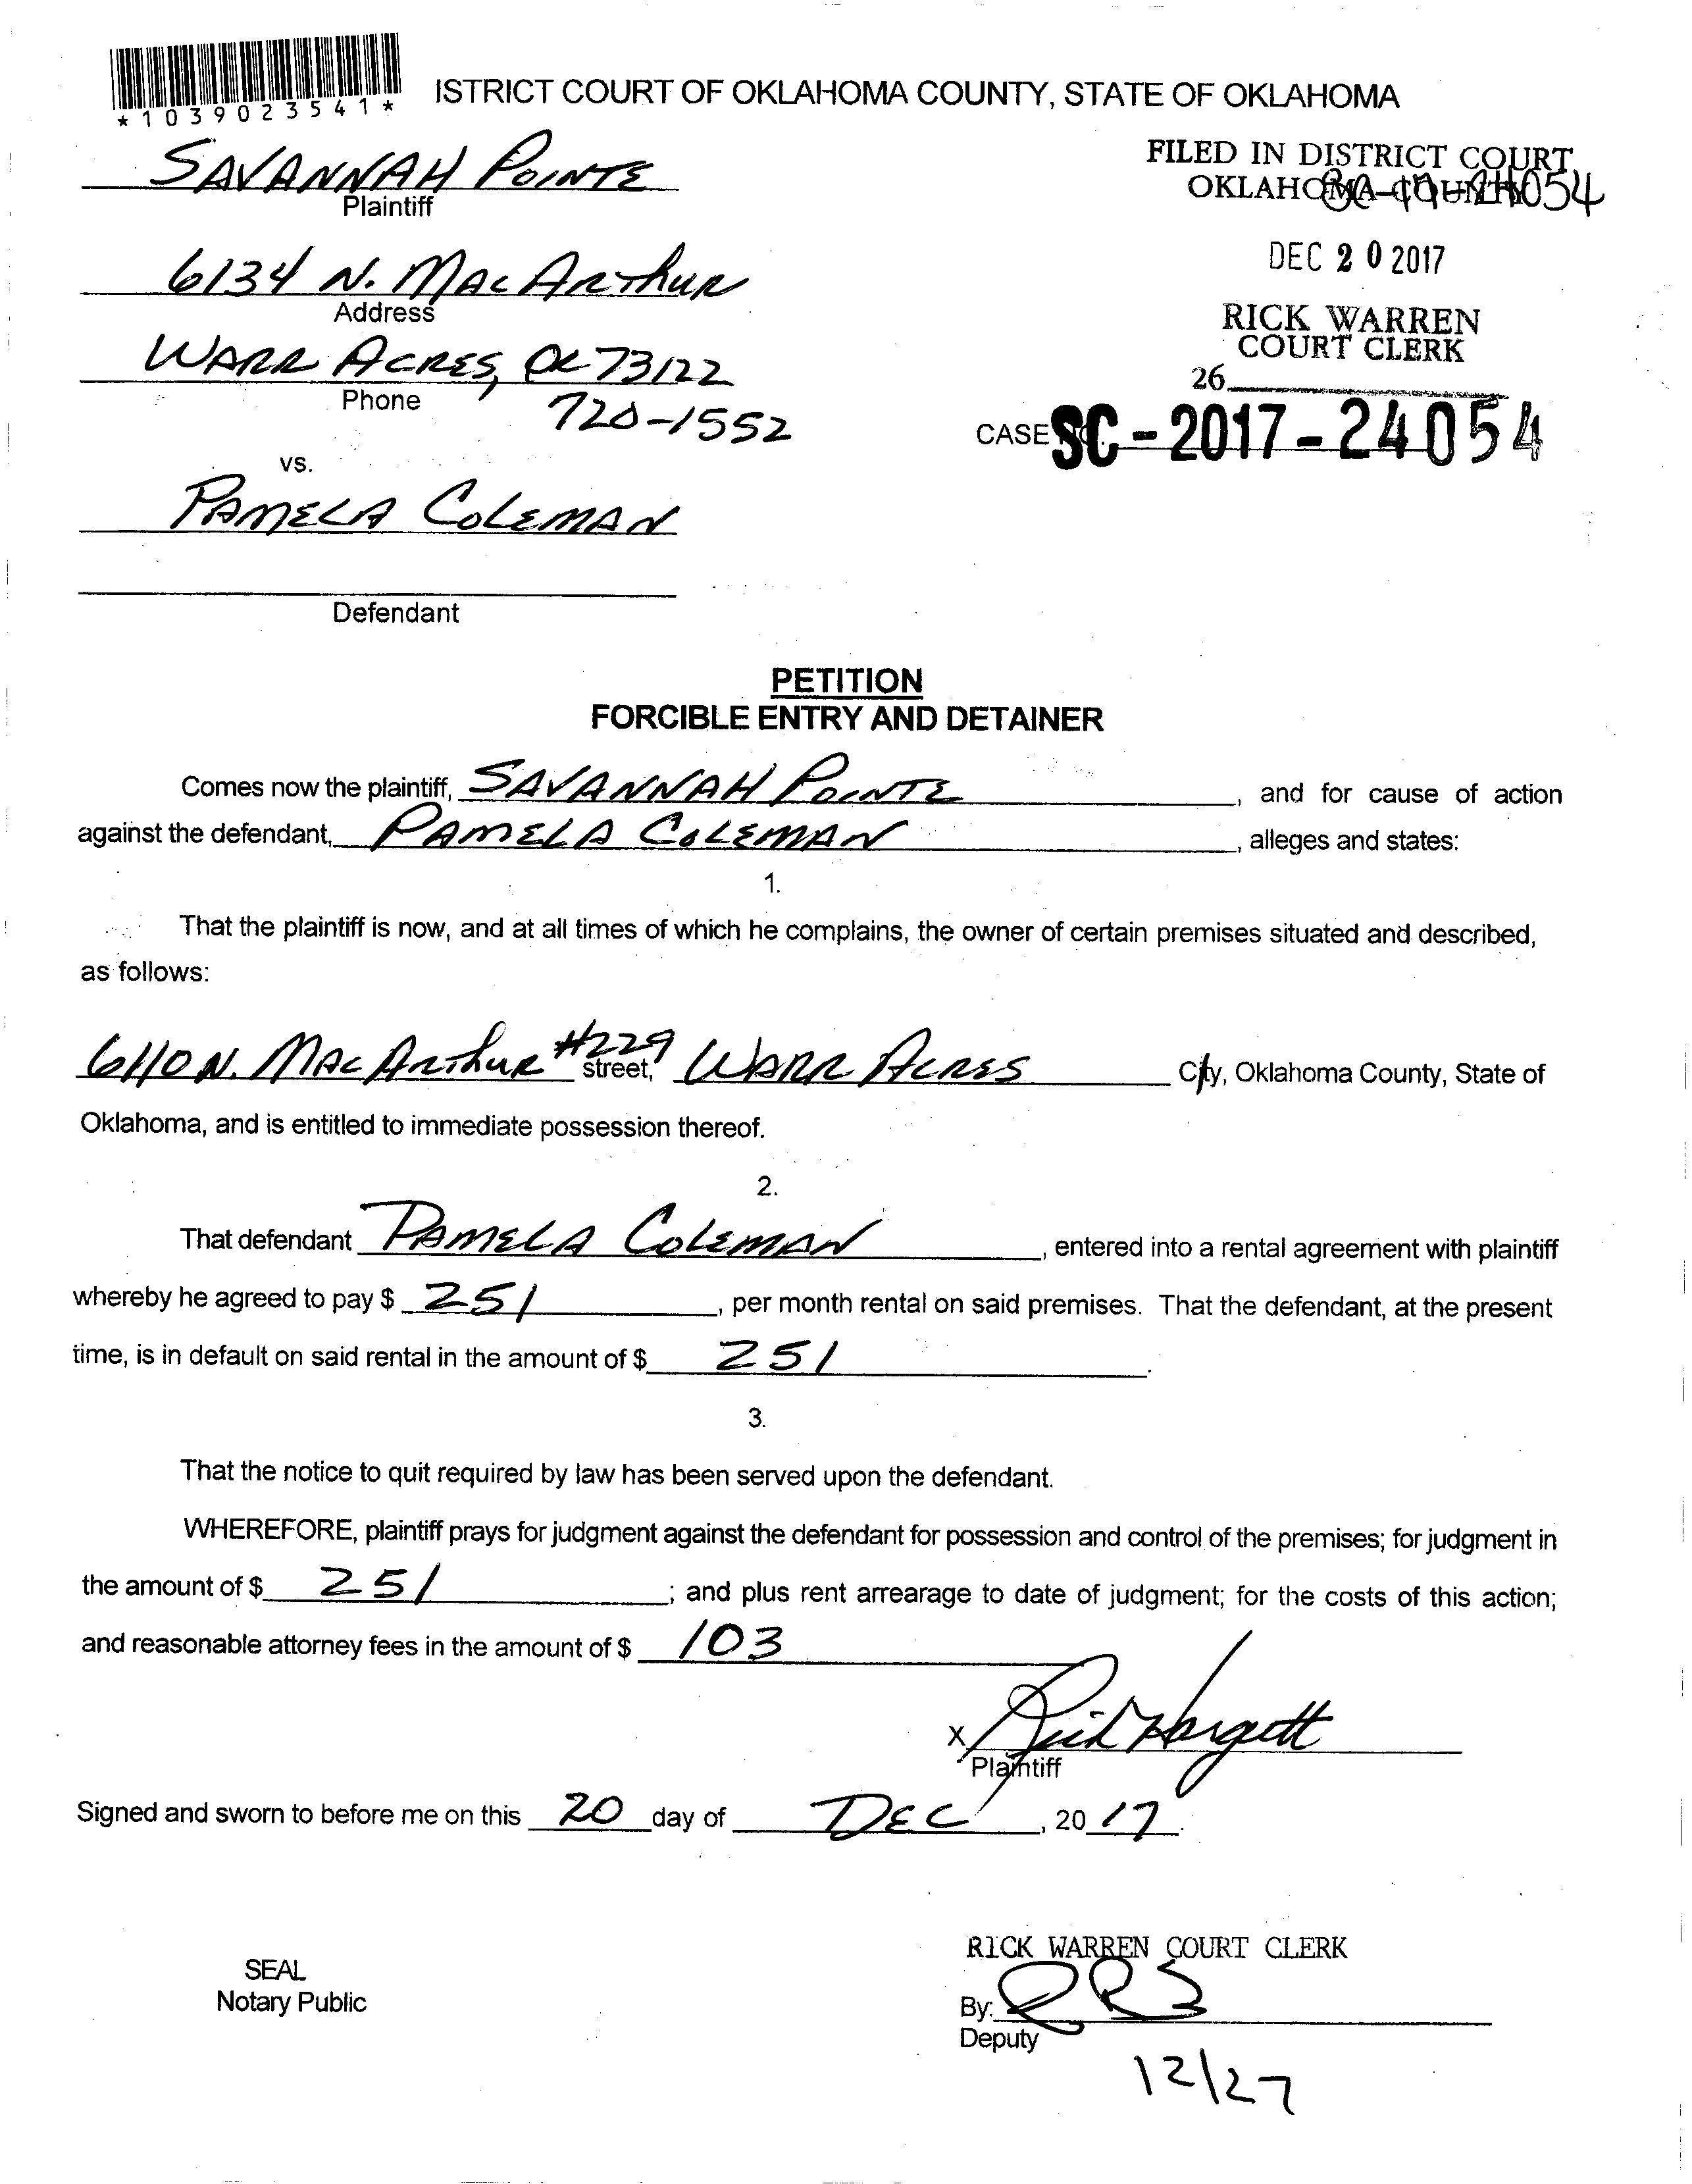 *1039023541*
ISTRICT COURT OF OKLAHOMA COUNTY, STATE OF OKLAHOMA
SAVANNAH POINTE
Plaintiff
FILED IN DISTRICT COURT
OKLAHOMA COUNTY
SC-17-24054
6134 N. MacArthur
Address
DEC 20 2017
WARR ACRES, OK 73122
Phone
720-1552
RICK WARREN
COURT CLERK
26
CASE NO. SC-2017-24054
vs.
PAMELA COLEMAN
Defendant
PETITION
FORCIBLE ENTRY AND DETAINER
Comes now the plaintiff, SAVANNAH POINTE, and for cause of action
against the defendant, PAMELA COLEMAN, alleges and states:
1.
That the plaintiff is now, and at all times of which he complains, the owner of certain premises situated and described,
as follows:
6110 N. MacArthur #229 street, WARR ACRES City, Oklahoma County, State of
Oklahoma, and is entitled to immediate possession thereof.
2.
That defendant PAMELA COLEMAN, entered into a rental agreement with plaintiff
whereby he agreed to pay $ 251, per month rental on said premises. That the defendant, at the present
time, is in default on said rental in the amount of $ 251.
3.
That the notice to quit required by law has been served upon the defendant.
WHEREFORE, plaintiff prays for judgment against the defendant for possession and control of the premises; for judgment in
the amount of $ 251; and plus rent arrearage to date of judgment; for the costs of this action;
and reasonable attorney fees in the amount of $ 103
X Rick Hargett
Plaintiff
Signed and sworn to before me on this 20 day of DEC, 20 17.
SEAL
Notary Public
RICK WARREN COURT CLERK
By:
Deputy
12/27